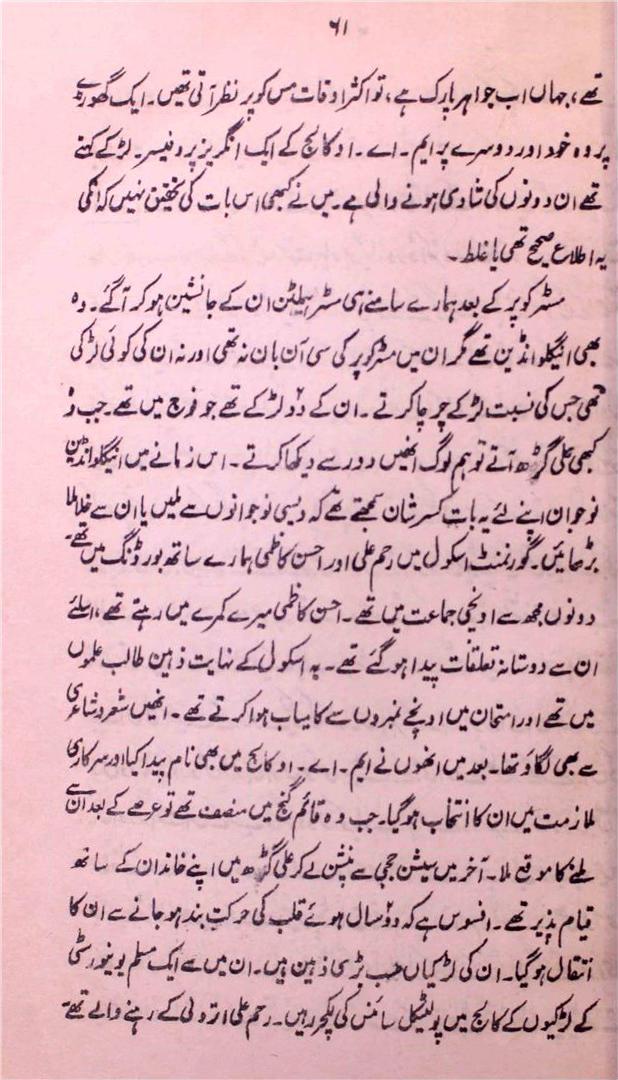 ۶۱
تھے، جہاں اب جواہر پارک ہے، تو اکثر اوقات مس کوپر نظر آتی تھیں۔ ایک گھوڑے
پر وہ خود اور دوسرے پر ایم۔ اے۔ او کالج کے ایک انگریز پروفیسر۔ لڑکے کہتے
تھے ان دونوں کی شادی ہونے والی ہے۔ میں نے کبھی اس بات کی تحقیق نہیں کہ انکی
یہ اطلاع صحیح تھی یا غلط۔
مسٹر کوپر کے بعد ہمارے سامنے ہی مسٹر ہملٹن ان کے جانشین ہو کر آگئے۔ وہ
بھی انیگلو انڈین تھے مگر ان میں مسٹر کوپر کی سی آن بان نہ تھی اور نہ ان کی کوئی لڑکی
تھی جس کی نسبت لڑکے چرچا کرتے۔ ان کے دو لڑکے تھے جو فوج میں تھے۔ جب وہ
کبھی علی گڑھ آتے تو ہم لوگ انھیں دور سے دیکھا کرتے۔ اس زمانے میں انیگلو انڈین
نوجوان اپنے لئے یہ بات کسر شان سمجھتے تھے کہ دیسی نوجوانوں سے ملیں یا ان سے خلا ملا
بڑھائیں۔ گورنمنٹ اسکول میں رحم علی اور احسن کاظمی ہمارے ساتھ بورڈنگ میں تھے۔
دونوں مجھ سے اونچی جماعت میں تھے۔ احسن کاظمی میرے کمرے میں رہتے تھے، اسلئے
ان سے دوستانہ تعلقات پیدا ہو گئے تھے۔ یہ اسکول کے نہایت ذہین طالب علموں
میں تھے اور امتحان میں اونچے نمبروں سے کامیاب ہوا کرتے تھے۔ انھیں شعر و شاعری
سے بھی لگاؤ تھا۔ بعد میں انھوں نے ایم۔ اے۔ او کالج میں بھی نام پیدا کیا اور سرکاری
ملازمت میں ان کا انتخاب ہوگیا۔ جب وہ قائم گنج میں منصف تھے تو عرصے کے بعد ان سے
ملنے کا موقع ملا۔ آخر میں سیشن ججی سے پنشن لے کر علی گڑھ میں اپنے خاندان کے ساتھ
قیام پذیر تھے۔ افسوس ہے کہ دو سال ہوئے قلب کی حرکت بند ہو جانے سے ان کا
انتقال ہو گیا۔ ان کی لڑکیاں سب بڑی ذہین ہیں۔ ان میں سے ایک مسلم یونیورسٹی
کے لڑکیوں کے کالج میں پولٹیکل سائنس کی لکچرر ہیں۔ رحم علی اترولی کے رہنے والے تھے۔